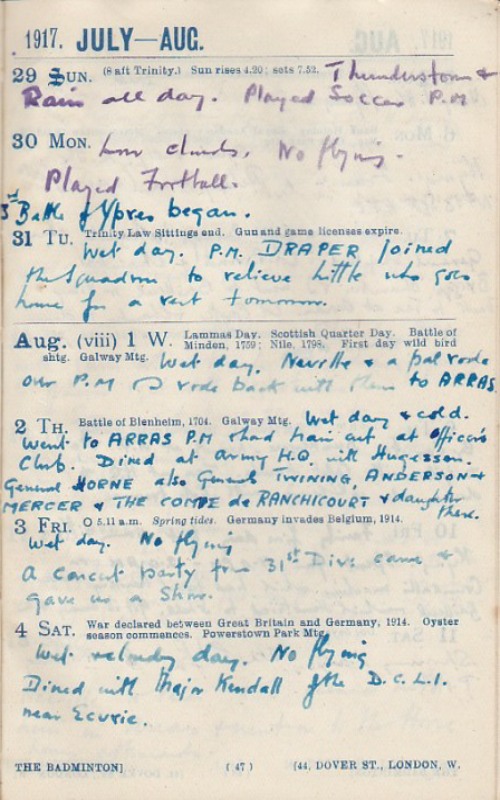 1917. JULY—AUG.
29 SUN. (8 aft Trinity.) Sun rises 4.20; sets 7.52. Thunderstorm &
Rain all day. Played Soccer P.M
30 MON. Low clouds. No flying.
Played Football.
3rd Battle of Ypres began.
31 TU. Trinity Law Sittings end. Gun and game licenses expire.
Wet day. P.M. DRAPER joined
the Squadron to relieve Little who goes
home for a rest tomorrow.
Aug. (viii) 1 W. Lammas Day. Scottish Quarter Day. Battle of
Minden, 1759; Nile, 1798. First day wild bird
shtg. Galway Mtg. Wet day. Neville & a pal rode
over P.M & I rode back with them to ARRAS
2 TH. Battle of Blenheim, 1704. Galway Mtg. Wet day & cold.
Went to ARRAS P.M & had hair cut at Officers
Club. Dined at Army H.Q. with Hugesson.
General HORNE also Generals TWINING, ANDERSON &
MERCER & THE COMTE de RANCHICOURT & daughter
there.
3 FRI. O 5.11 a.m. Spring tides. Germany invades Belgium, 1914.
Wet day. No flying
A concert party from 31st Divs. came &
gave us a Show.
4 SAT. War declared between Great Britain and Germany, 1914. Oyster
season commences. Powerstown Park Mtg.
Wet day. No flying
Dined with Major Kendall of the D.C.L.I.
near Ecurie.
THE BADMINTON] (47) [44, DOVER ST., LONDON, W.